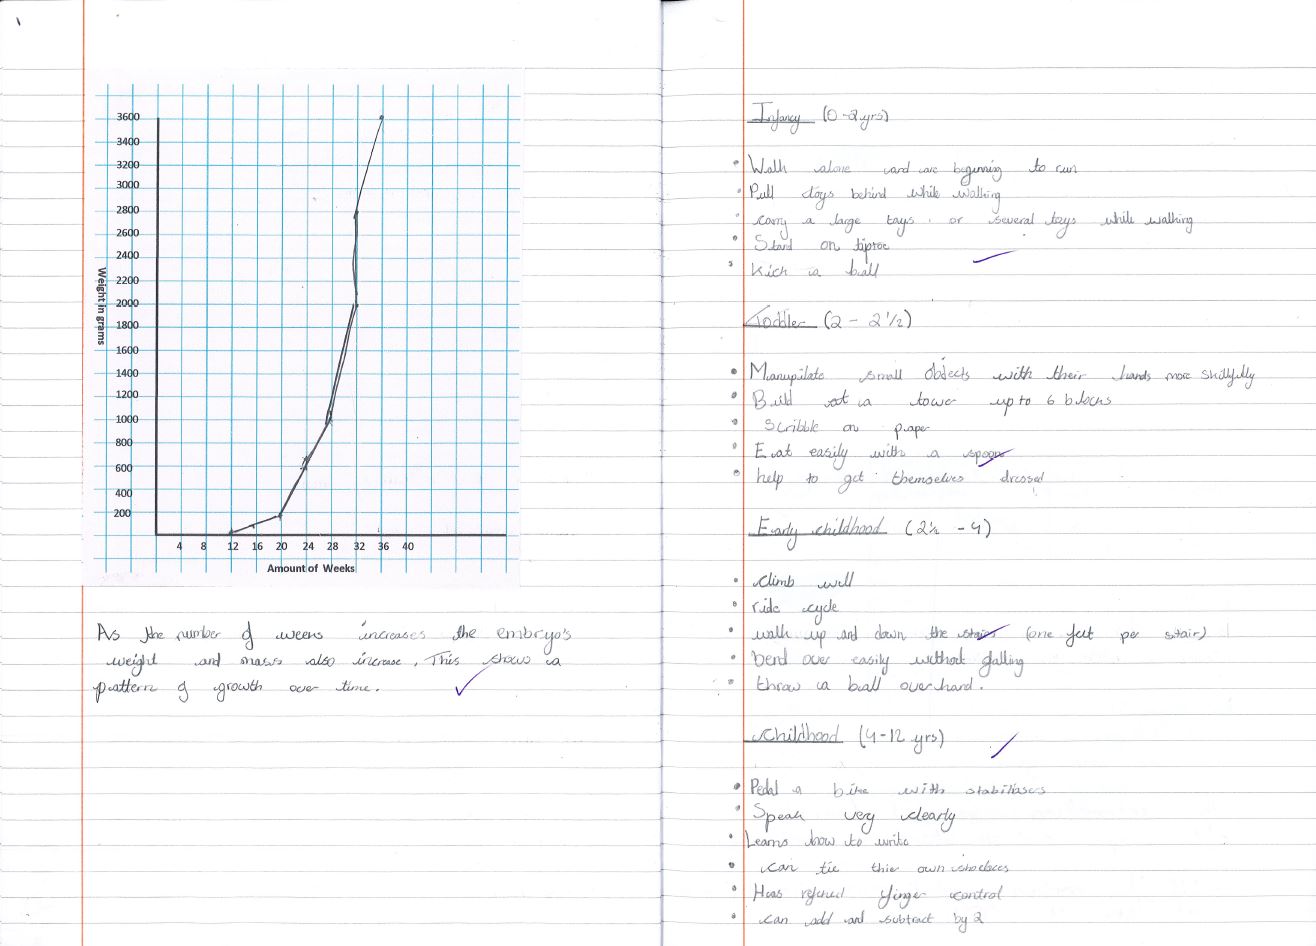 3600
3400
3200
3000
2800
2600
2400
2200
2000
1800
1600
1400
1200
1000
800
600
400
200
Weight in grams
4 8 12 16 20 24 28 32 36 40
Amount of Weeks
As the number of weeks increases the embryo's
weight and mass also increase. This shows a
pattern of growth over time.
Infancy (0-2yrs)
Walk alone and are beginning to run
Pull toys behind while walking
carry a large toys or several toys while walking
Stand on tiptoe
Kick a ball
Toddler (2 - 2 1/2)
Manupilate small objects with their hands more skillfully
Build a tower up to 6 blocks
Scribble on paper
Eat easily with a spoon
help to get themselves dressed
Early childhood (2½ - 4)
climb well
ride cycle
walk up and down the stairs (one feet per stair)
bend over easily without falling
throw a ball overhard.
Childhood (4-12 yrs)
Pedal a bike with stabilisers
Speak very clearly
Learns how to write
can tie thier own shoelaces
Has refined finger control
can add and subtract by 2